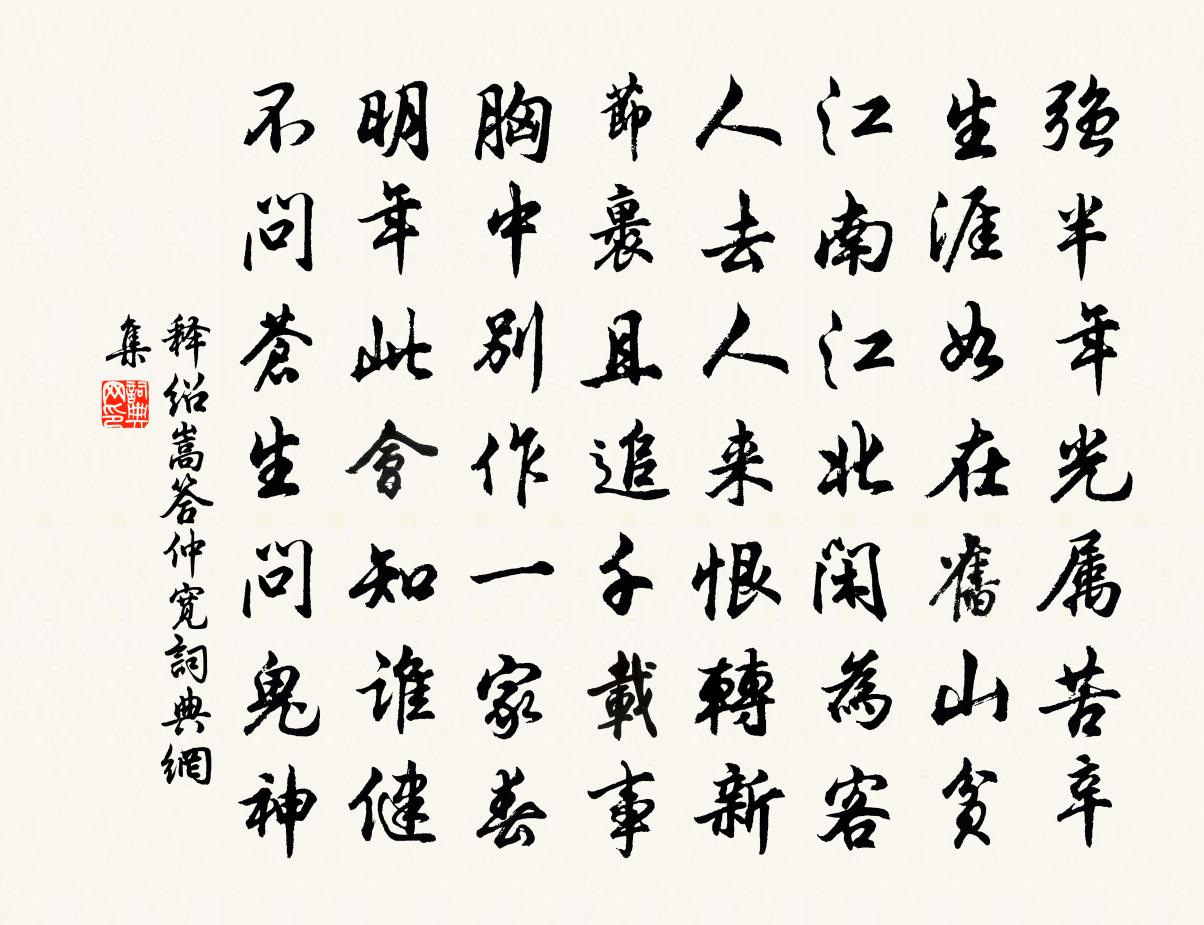 强半年光属苦辛
生涯如在舊山貧
江南江北閑為客
人去人来恨轉新
節裏且追千載事
胸中別作一家春
明年此會知誰健
不問蒼生問鬼神
释绍嵩答仲寬詞典網
集
詞典
网印